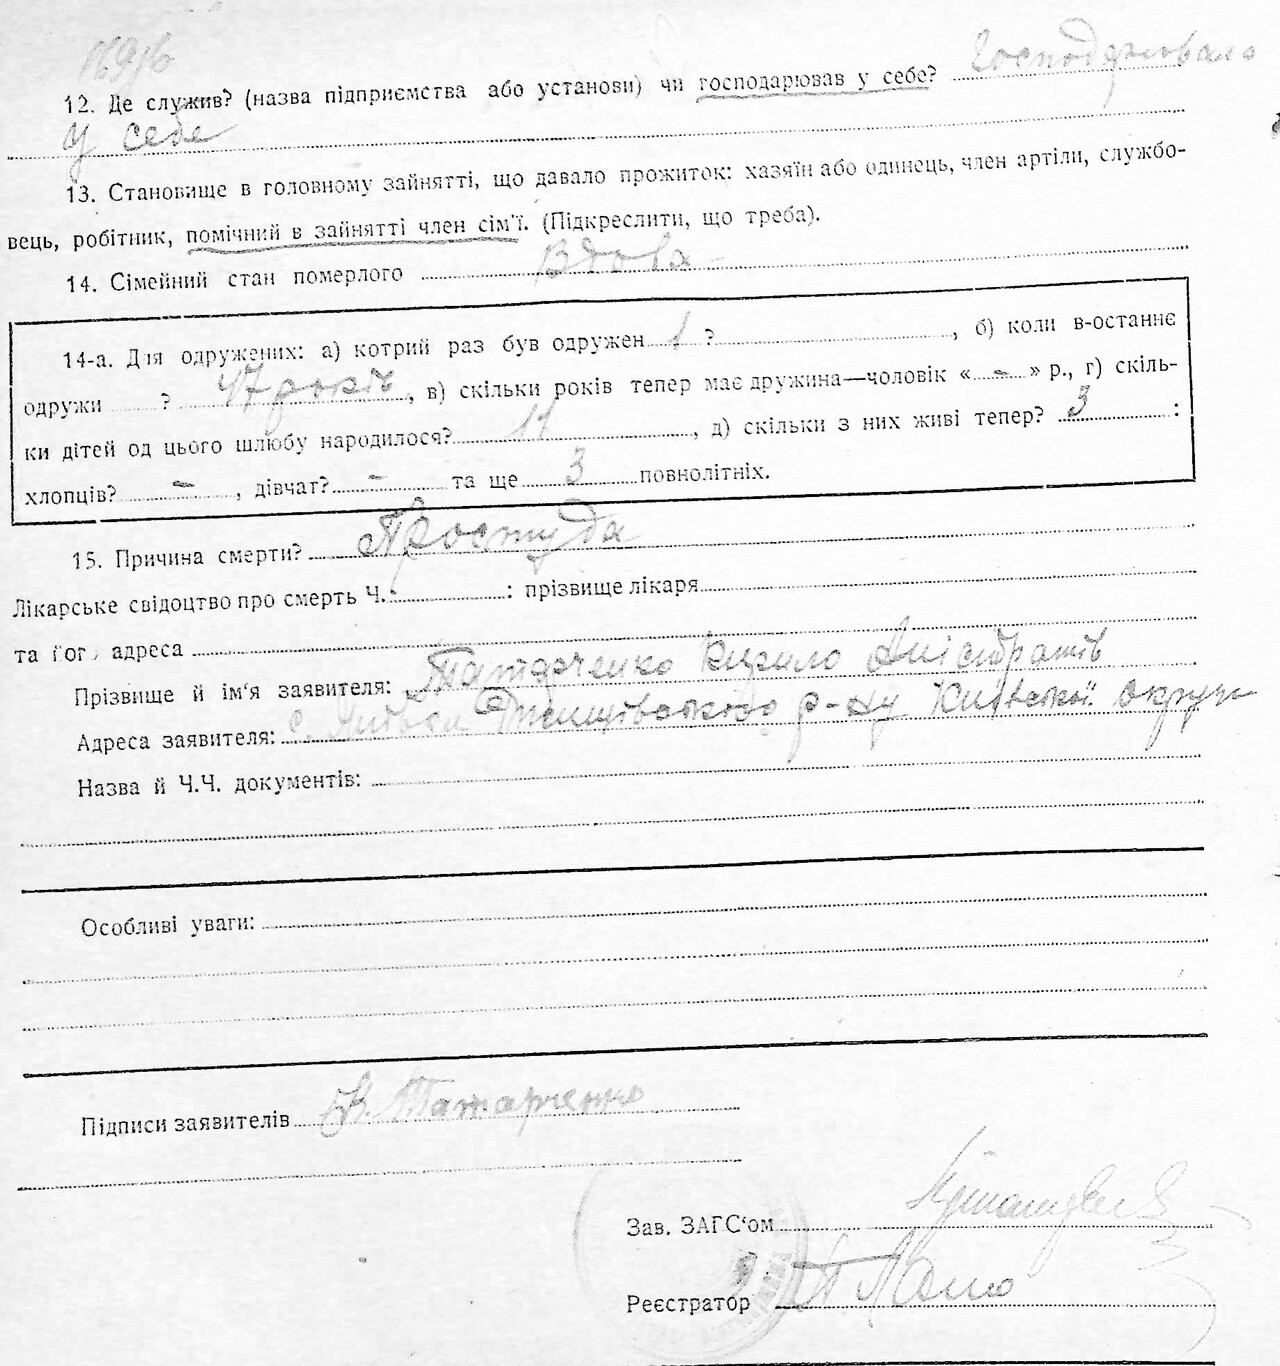 12. Де служив? (назва підприємства або установи) чи господарював у себе? Господарювала
у себе
13. Становище в головному зайнятті, що давало прожиток: хазяїн або одинець, член артіли, службо-
вець, робітник, помічний в зайнятті член сім'ї. (Підкреслити, що треба).
14. Сімейний стан померлого Вдова
14-а. Для одружених: а) котрий раз був одружен 1 ?, б) коли в-останнє
одружи ? 47 років, в) скільки років тепер має дружина—чоловік « - » р., г) скіль-
ки дітей од цього шлюбу народилося? 11, д) скільки з них живі тепер? 3 :
хлопців? -, дівчат? - та ще 3 повнолітніх.
15. Причина смерти? Простуда
Лікарське свідоцтво про смерть Ч. : прізвище лікаря
та його адреса
Прізвище й ім'я заявителя: Татарченко Кирило
Адреса заявителя: с. р-ну Київської округи
Назва й Ч.Ч. документів:
Особливі уваги:
Підписи заявителів К. Татарченко
Зав. ЗАГС'ом
Реєстратор